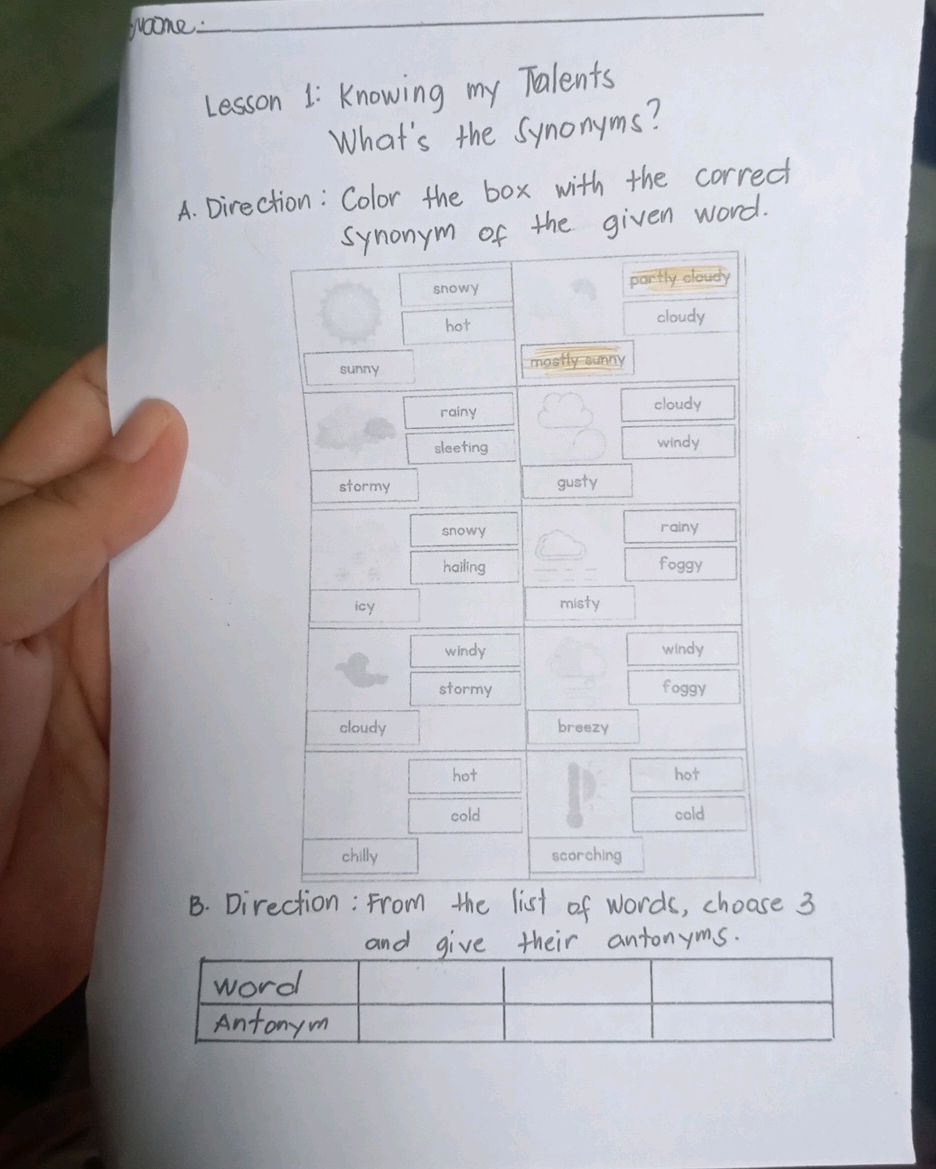 Name:
Lesson 1: Knowing my Talents
What's the Synonyms?
A. Direction: Color the box with the correct
Synonym of the given word.
snowy
hot
sunny
partly cloudy
cloudy
mostly sunny
rainy
sleeting
stormy
cloudy
windy
gusty
snowy
hailing
icy
rainy
foggy
misty
windy
stormy
cloudy
windy
foggy
breezy
hot
cold
chilly
hot
cold
scorching
B. Direction: From the list of words, choose 3
and give their antonyms.
Word
Antonym